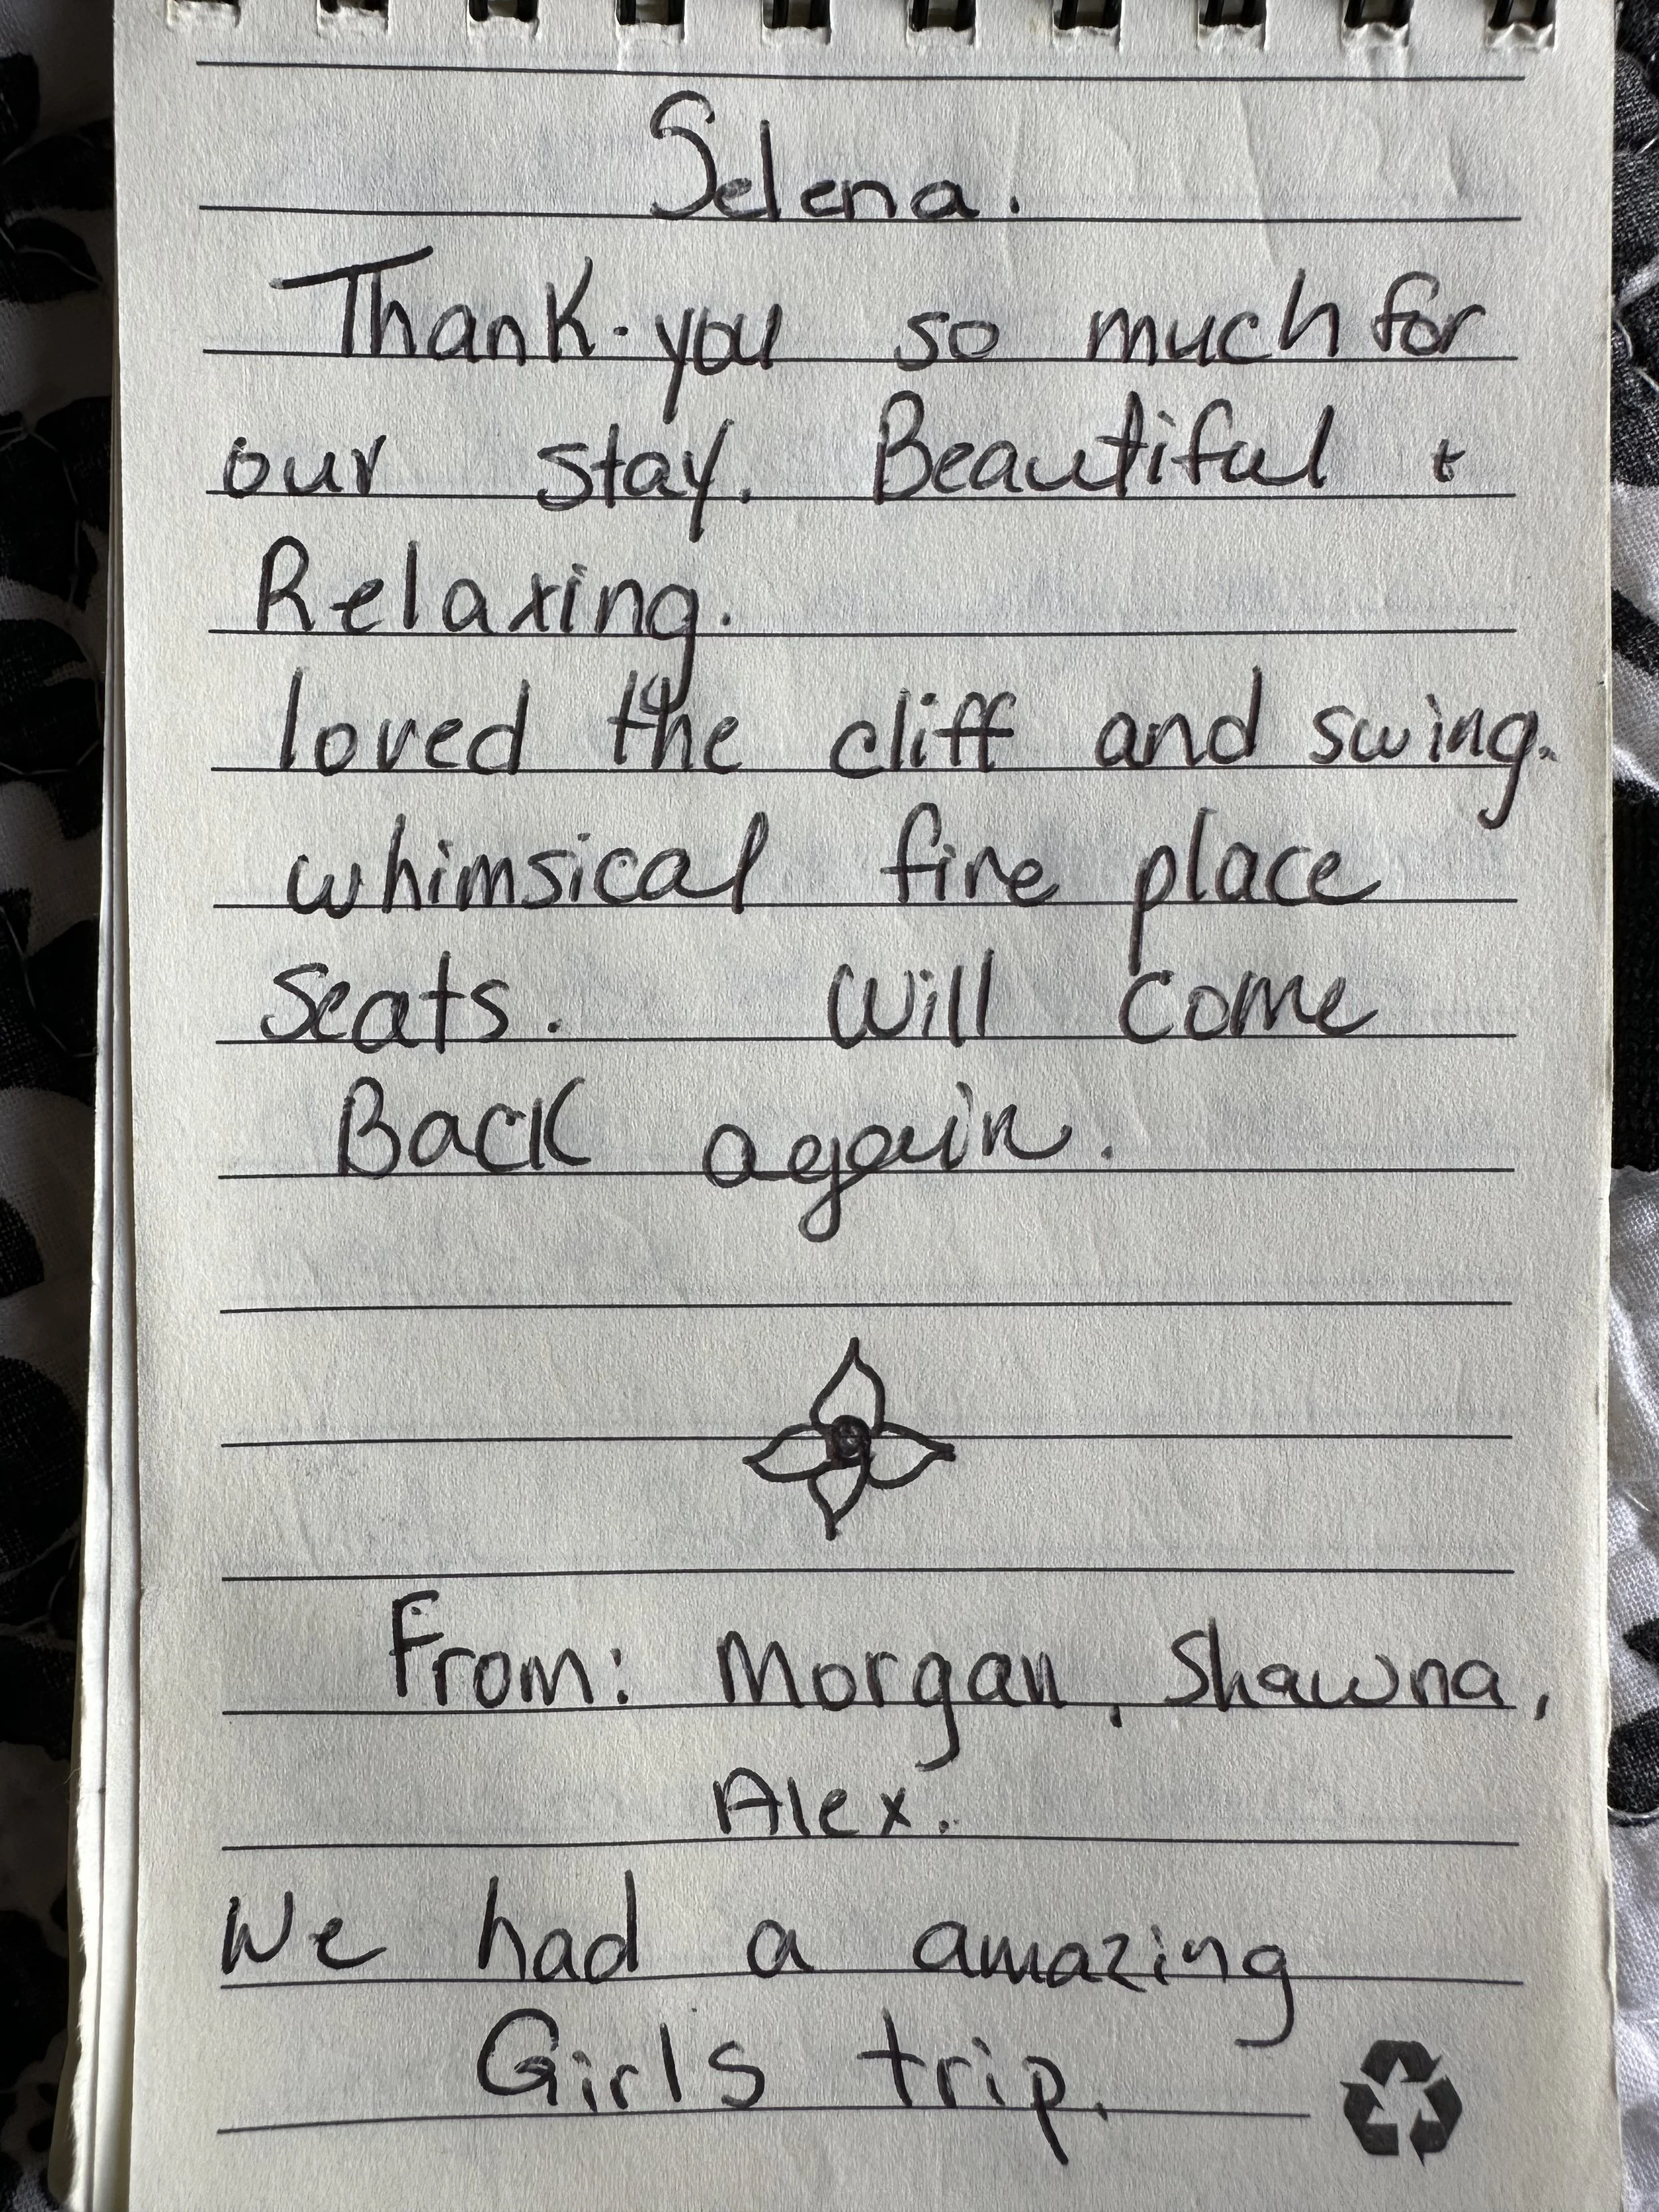 Selena.
Thank-you so much for
our stay. Beautiful +
Relaxing.
loved the cliff and swing.
whimsical fire place
Seats. Will come
Back again.
From: Morgan, Shawna,
Alex.
We had a amazing
Girls trip.